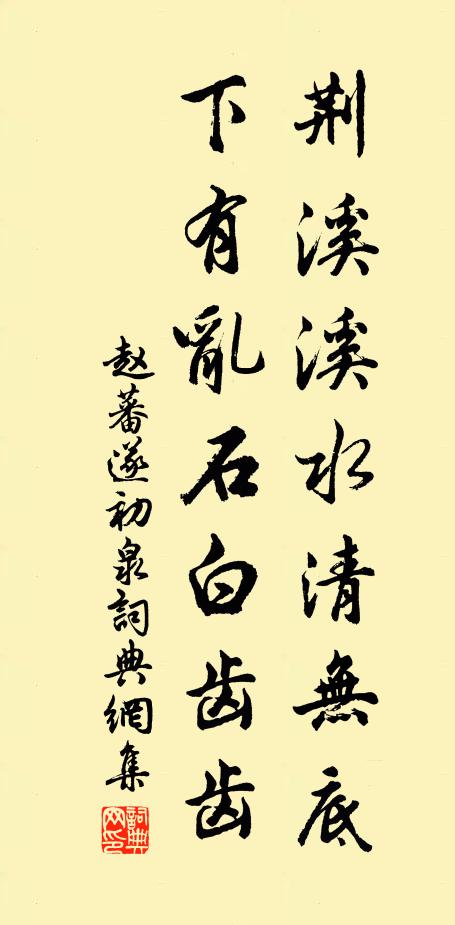 荆溪溪水清無底
下有亂石白齿齿
赵蕃遂初泉詞典網集
詞典網印